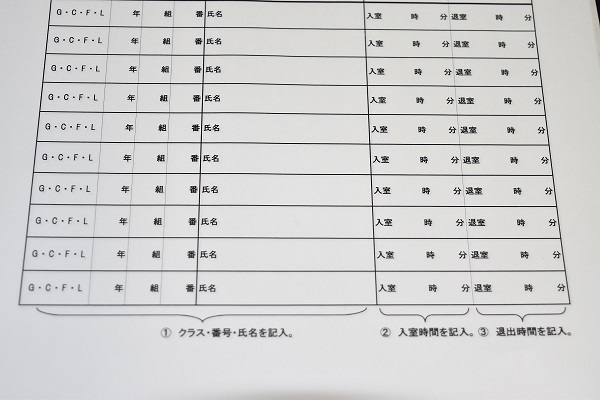 G・C・F・L 年 組 番 氏名 入室 時 分 退室 時 分
G・C・F・L 年 組 番 氏名 入室 時 分 退室 時 分
G・C・F・L 年 組 番 氏名 入室 時 分 退室 時 分
G・C・F・L 年 組 番 氏名 入室 時 分 退室 時 分
G・C・F・L 年 組 番 氏名 入室 時 分 退室 時 分
G・C・F・L 年 組 番 氏名 入室 時 分 退室 時 分
G・C・F・L 年 組 番 氏名 入室 時 分 退室 時 分
G・C・F・L 年 組 番 氏名 入室 時 分 退室 時 分
G・C・F・L 年 組 番 氏名 入室 時 分 退室 時 分
G・C・F・L 年 組 番 氏名 入室 時 分 退室 時 分
① クラス・番号・氏名を記入。 ② 入室時間を記入。 ③ 退出時間を記入。